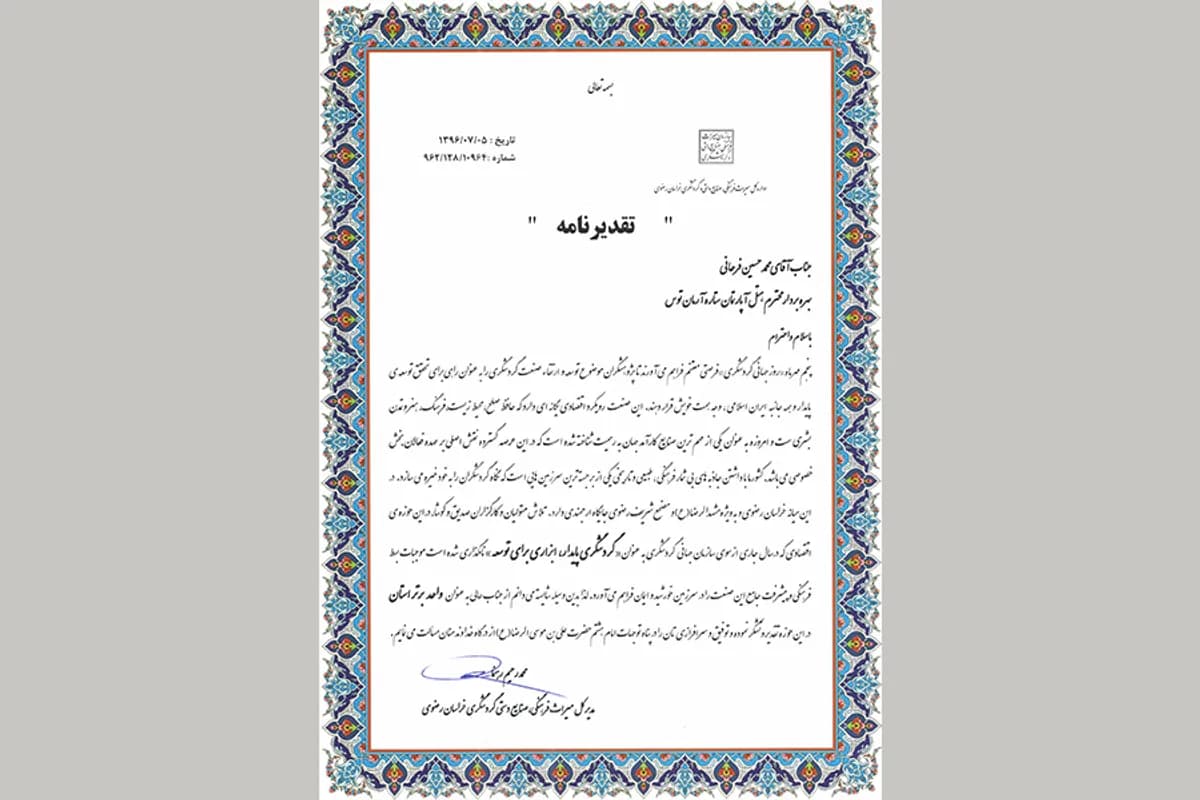 بسمه تعالی
تاریخ : ۱۳۹۶/۰۷/۰۵
شماره : ۹۶۲/۱۲۸/۱۰۹۶۴
اداره کل میراث فرهنگی، صنایع دستی و گردشگری خراسان رضوی
" تقدیرنامه "
جناب آقای محمد حسین فرحانی
بهره بردار محترم هتل آپارتمان ستاره آرمان توس
با سلام و احترام
پنجم مهرماه «روز جهانی گردشگری» فرصتی مغتنم فراهم می آورند تا پژوهشگران موضوع توسعه و ارتقاء صنعت گردشگری را به عنوان راهی برای تحقق توسعه ی
پایدار و همه جانبه ایران اسلامی، وجهه همت خویش قرار دهند. این صنعت رویکرد اقتصادی یگانه ای دارد که حافظ صلح، محیط زیست، فرهنگ، هنر و تمدن
بشری ست و امروزه به عنوان یکی از مهم ترین صنایع کارآمد جهان به رسمیت شناخته شده است که در این عرصه گسترده نقش اصلی بر عهده فعالان بخش
خصوصی می باشد. کشور ما با داشتن جاذبه های بی شمار فرهنگی، طبیعی و تاریخی یکی از برجسته ترین سرزمین هایی است که نگاه گردشگران را به خود خیره می سازد. در
این میانه خراسان رضوی و به ویژه مشهد الرضا(ع) و مضجع شریف رضوی جایگاه ارجمندی دارد. تلاش متولیان و کارگزاران صدیق و کوشا در این حوزه ی
اقتصادی که در سال جاری از سوی سازمان جهانی گردشگری به عنوان «گردشگری پایدار، ابزاری برای توسعه» نامگذاری شده است موجبات بسط
فرهنگی و پیشرفت جامع این صنعت را در سرزمین خورشید و ایمان فراهم می آورد. لذا بدین وسیله شایسته می دانم از جناب عالی به عنوان واحد برتر استان
در این حوزه تقدیر و تشکر نموده و توفیق و سرافرازی تان را در پناه توجهات امام هشتم حضرت علی بن موسی الرضا(ع) از درگاه خداوند منان مسالت می نمایم.
محمد رحیم رهنما
مدیر کل میراث فرهنگی، صنایع دستی و گردشگری خراسان رضوی